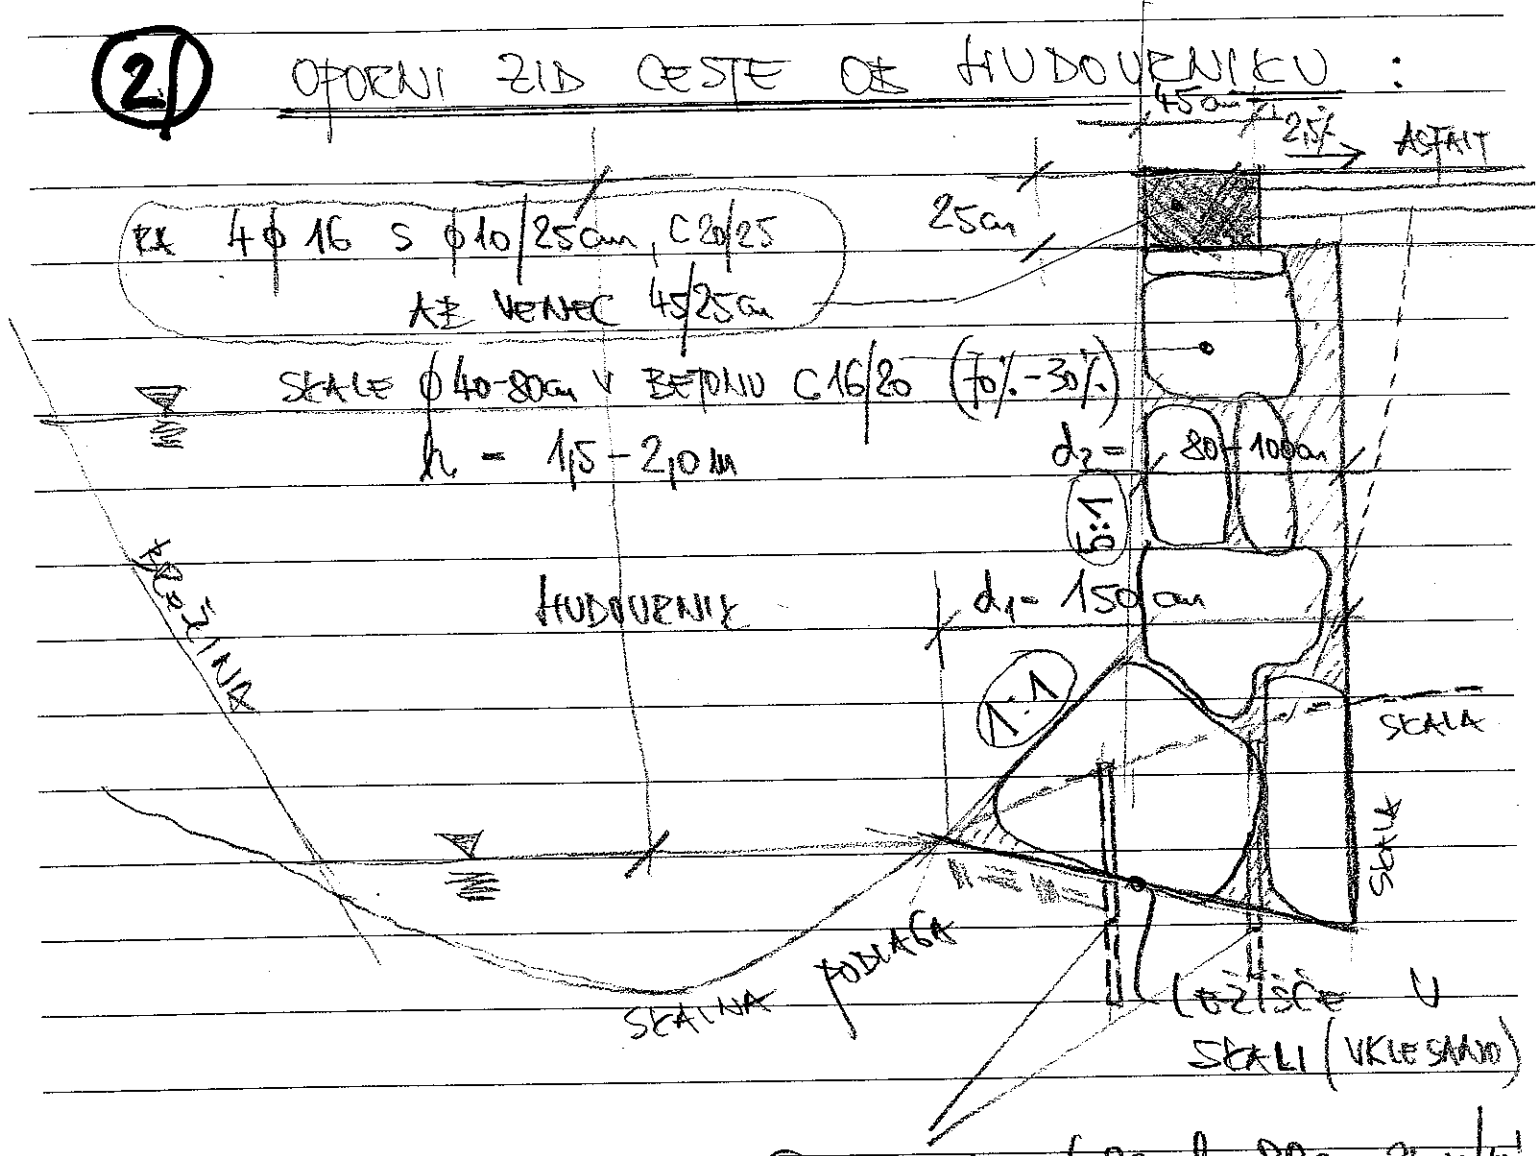 2/ OPORNI ZID CESTE OB HUDOURNIKU :
45cm
2,5% ASFALT
RA 4ϕ16 S ϕ10/25cm, C20/25
AB VENEC 45/25cm
25cm
SKALE ϕ40-80cm V BETONU C16/20 (70%-30%)
h = 1,5-2,0m
d₂= 80-100cm
5:1
BREŽINA
HUDOURNIK
d₁= 150cm
1:1
SKALA
SKALA
SKALNA PODLAGA
LEŽIŠČE V
SKALI (VKLESANO)